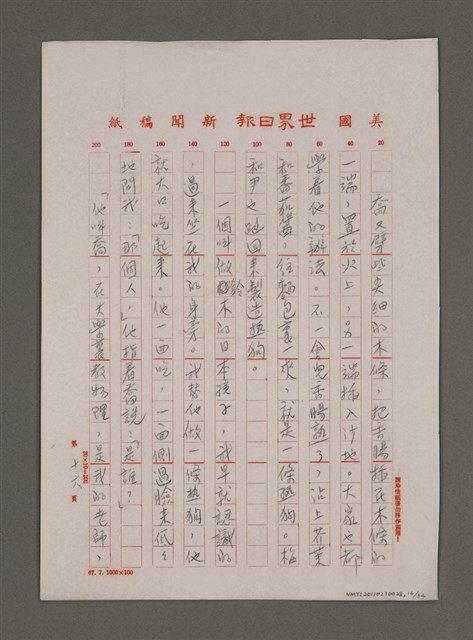 美國世界日報新聞稿紙
20 40 60 80 100 120 140 160 180 200
喬又劈些尖細的木條，把香腸插在木條的
一端，置於火上，另一端插入沙地。大家也都
學着他的辦法。不一會兒香腸熟了，沾上芥茉
和番茄醬，往麵包裏一夾，就是一條熱狗。梅
和尹也跑回來製造熱狗。
一個叫做鈴木的日本孩子，我早就認識的
，過來坐在我的身旁。我替他做一條熱狗，他
就大口吃起來。他一面吃，一面側過臉來低々
地問我：「那個人，」他指着喬說：「是誰？」
「他叫喬，在大學裏教物理，是我的老師，
第十六頁
20×10=200
請勿在紙邊以外作範圍！
67. 7. 1000×100